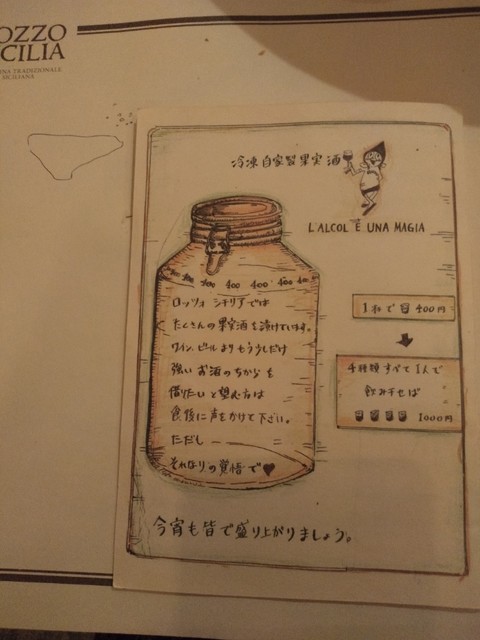 OZZO
CILIA
INA TRADIZIONALE
SICILIANA
冷凍自家製果実酒
L'ALCOL È UNA MAGIA
400 400 400 400
ロッツォ シチリアでは
たくさんの果実酒を漬けています。
ワイン、ビールよりもう少しだけ
強いお酒のちからを
借りたいと望む方は
食後に声をかけて下さい。
ただし
それなりの覚悟で♥
1杯で 400円
4種類すべて1人で
飲み干せば
1000円
今宵も皆で盛り上がりましょう。